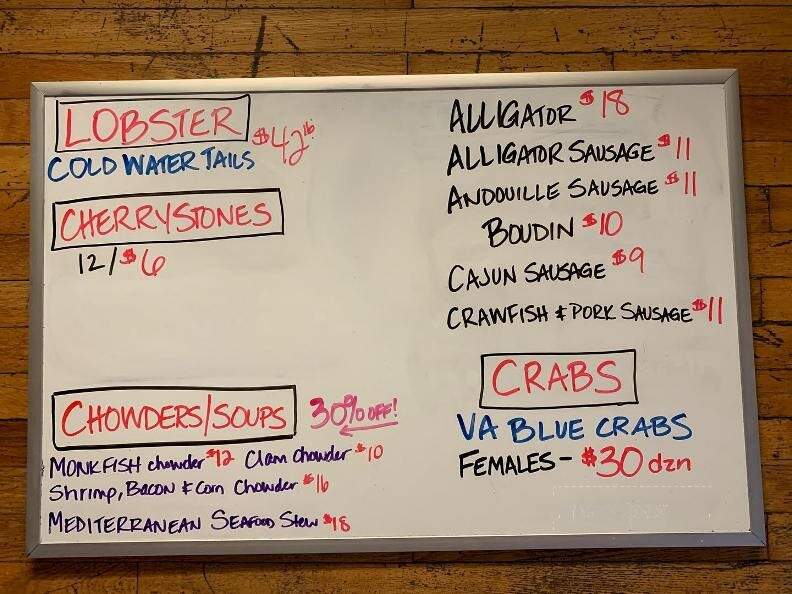 LOBSTER $42 lb
COLD WATER TAILS
CHERRYSTONES
12/$6
CHOWDERS/SOUPS 30% OFF!
MONKFISH chowder $12 Clam Chowder $10
Shrimp, Bacon & Corn Chowder $16
MEDITERRANEAN SEAFOOD Stew $18
ALLIGATOR $18
ALLIGATOR SAUSAGE $11
ANDOUILLE SAUSAGE $11
BOUDIN $10
CAJUN SAUSAGE $9
CRAWFISH & PORK SAUSAGE $11
CRABS
VA BLUE CRABS
FEMALES - $30 dzn